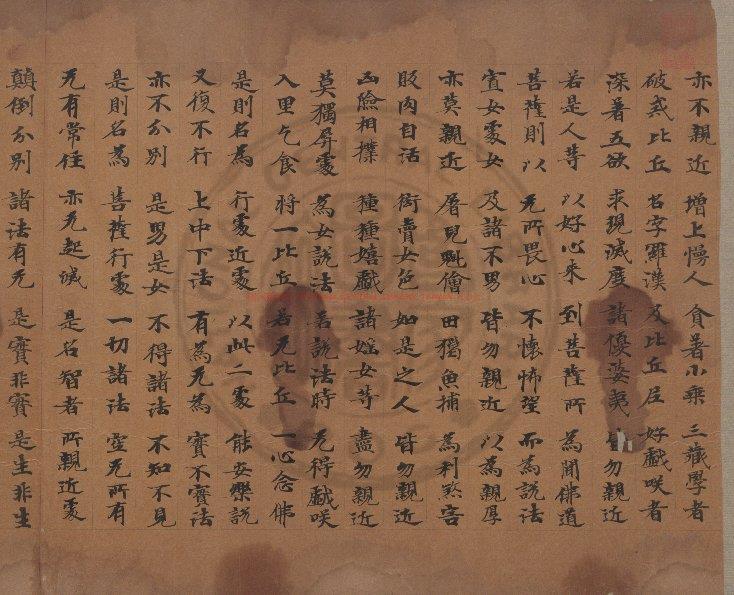 亦不親近 增上慢人 貪著小乘 三藏學者
破戒比丘 名字羅漢 及比丘尼 好戲咲者
深著五欲 求現滅度 諸優婆夷 皆勿親近
若是人等 以好心來 到菩薩所 為聞佛道
菩薩則以 无所畏心 不懷悕望 而為說法
寡女處女 及諸不男 皆勿親近 以為親厚
亦莫親近 屠兒魁膾 田獵魚捕 為利煞害
販肉自活 衒賣女色 如是之人 皆勿親近
凶險相撲 種種嬉戲 諸婬女等 盡勿親近
莫獨屏處 為女說法 若說法時 无得戲咲
入里乞食 將一比丘 若无比丘 一心念佛
是則名為 行處近處 以此二處 能安樂說
又復不行 上中下法 有為无為 實不實法
亦不分別 是男是女 不得諸法 不知不見
是則名為 菩薩行處 一切諸法 空无所有
无有常住 亦无起滅 是名智者 所親近處
顛倒分別 諸法有无 是實非實 是生非生